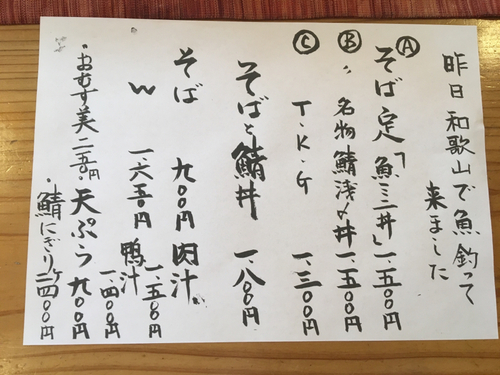 昨日和歌山で魚釣って
来ました
Ⓐそば定「魚ミニ丼」一、五〇〇円
Ⓑ 〃 名物 鯖浅〆丼 一、五〇〇円
Ⓒ T・K・G 一、三〇〇円
そばと鯖丼 一、八〇〇円
そば 九〇〇円 肉汁 一、五〇〇円
W 一、六五〇円 鴨汁 一、四〇〇円
・おむす美 二五〇円 天ぷら 九〇〇円
・鯖にぎり 二ケ 四〇〇円